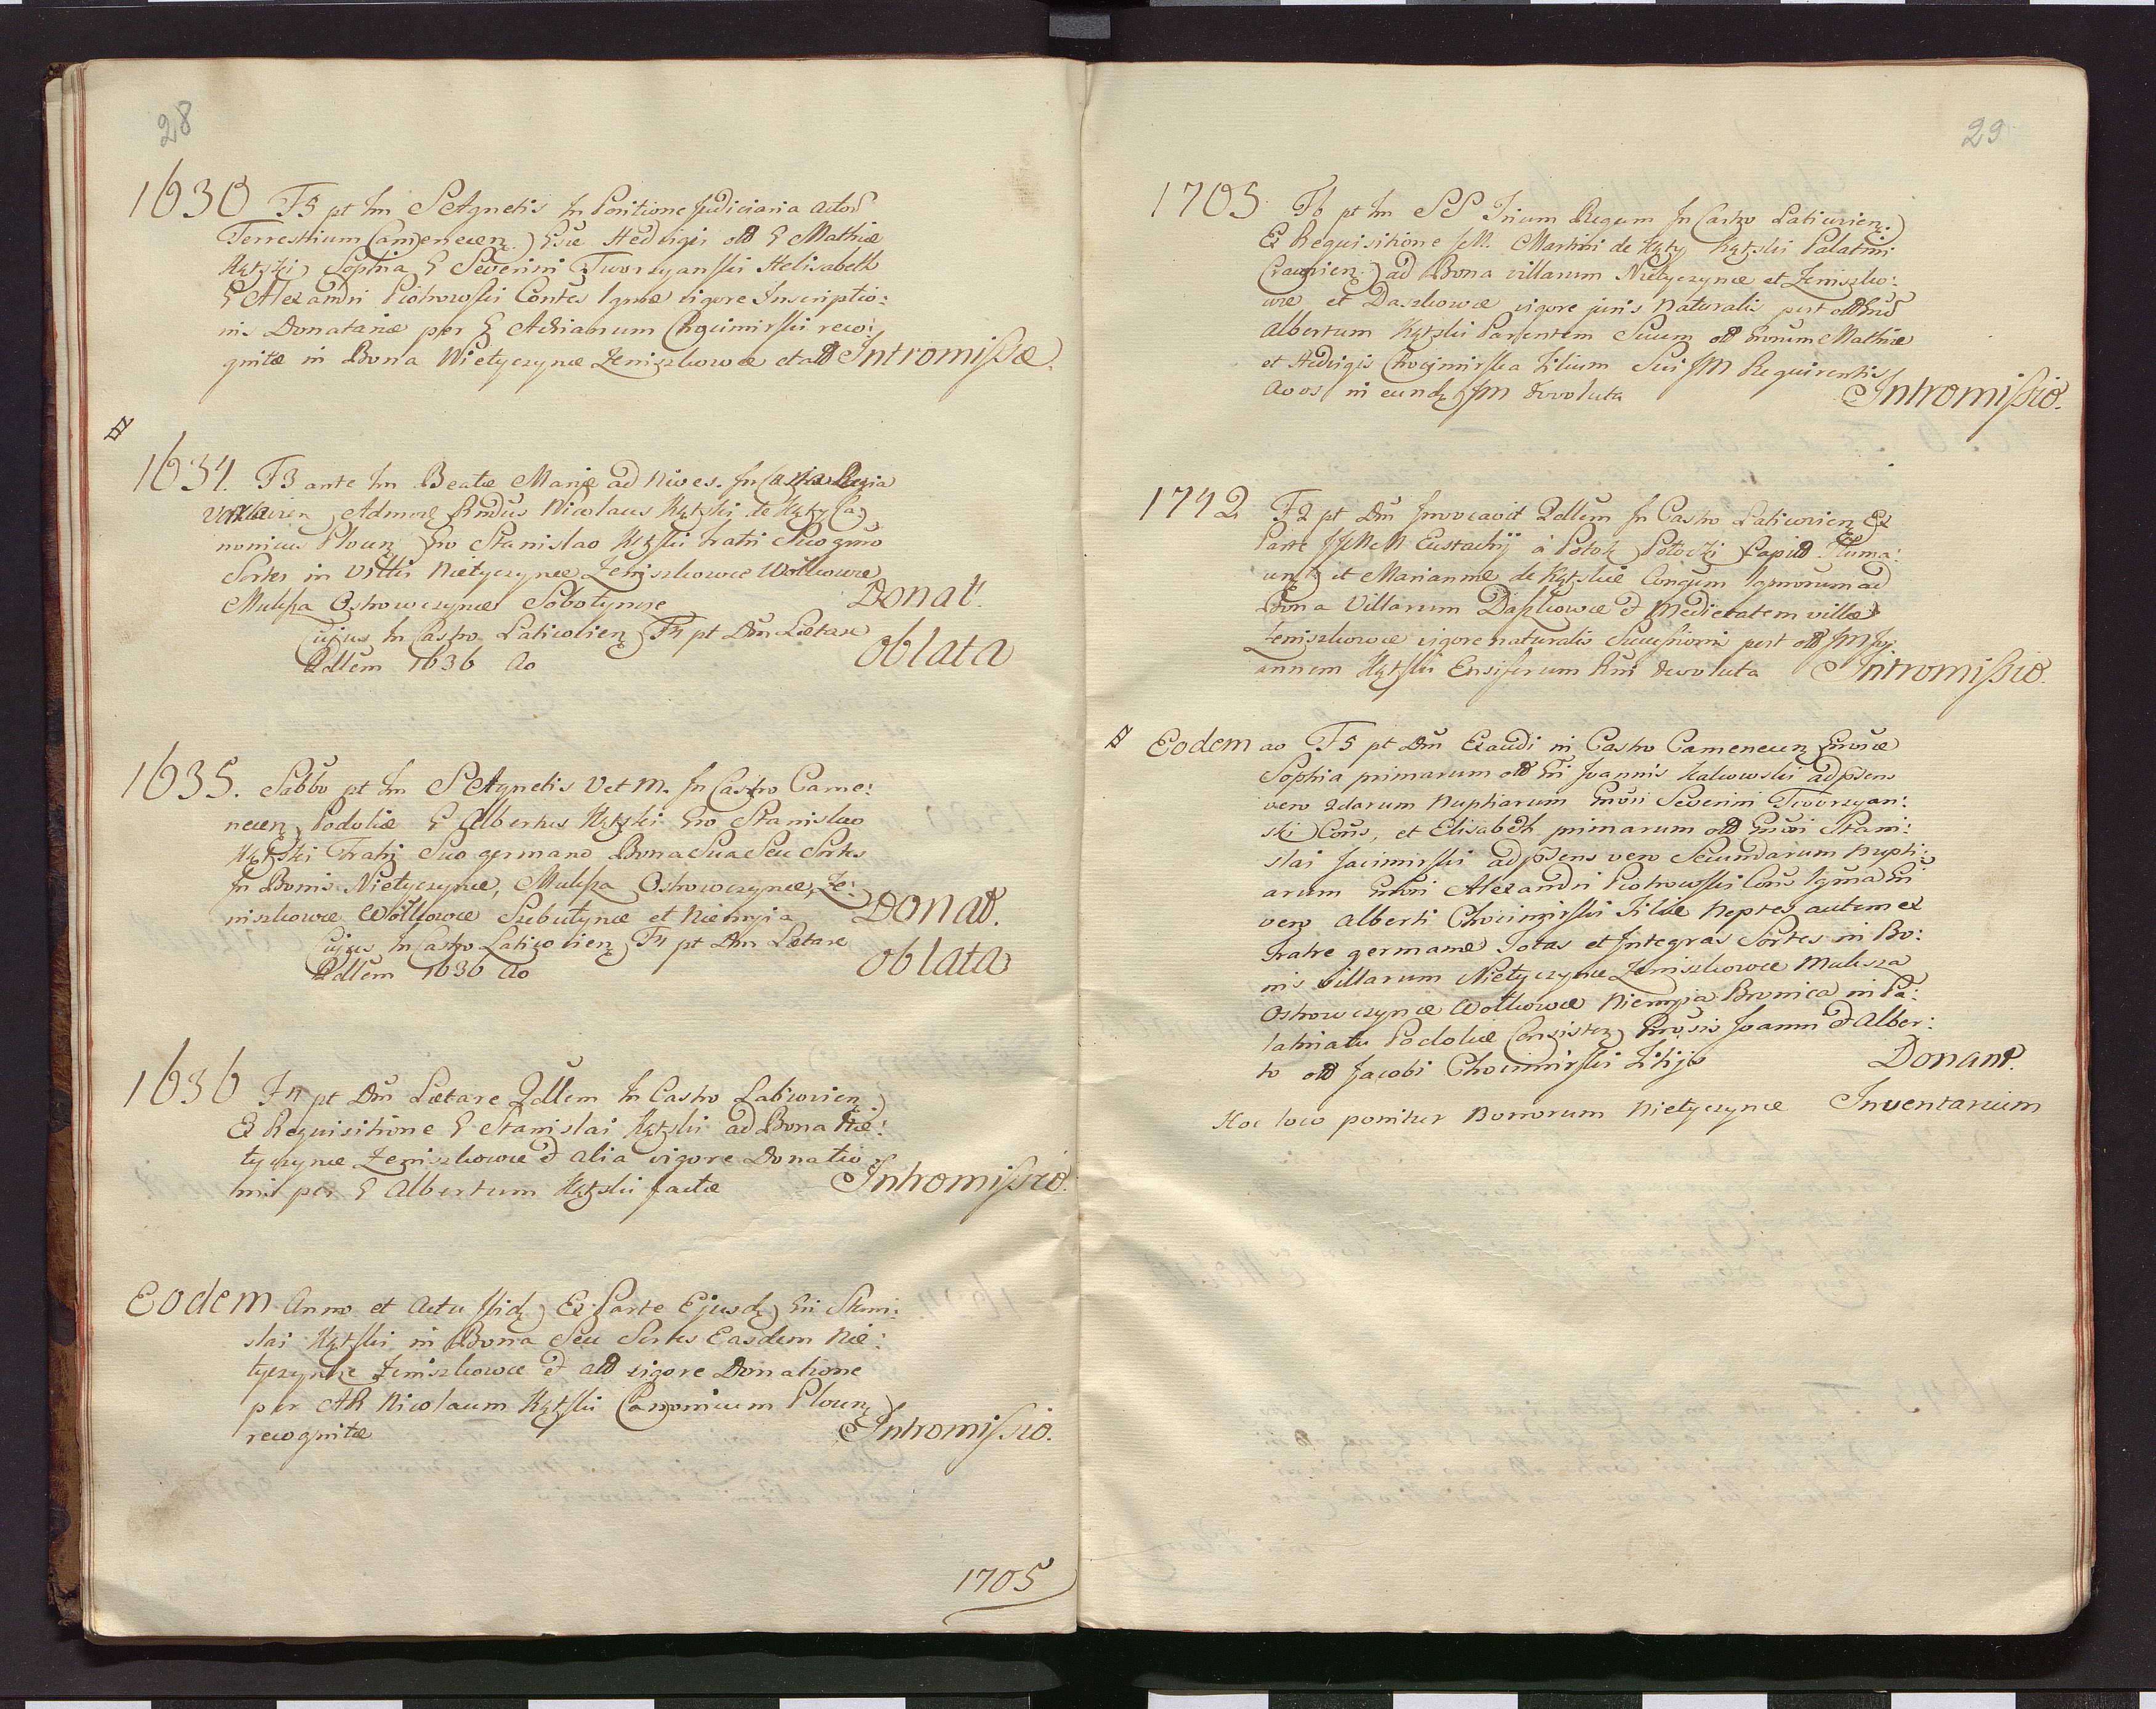 28
1630 F5 pt fm S Agnetis In Positione Judiciaria actor
Terrestrium Camenecen Gsæ Hedvigis olb G Mathiæ
Kątski Sophia G Severini Tworzyanski Helisabeth
G Alexandri Piotrowski Contes Ignæ vigore Inscriptio:
nis Donatariæ per G Adrianum Chocimirski reco:
gnitæ in Bona Nietyczyncæ Zeniszkowcæ et alb Intromissæ.
1634. F3 ante fm Beatæ Mariæ ad nives. In Castris Regia
Admore Rndus Nicolaus Kątski de Kąty Ca:
nonicus Plocen Gno Stanislao Kątski fratri Suo gmno
Sortes in Villis Nietyczyncæ Zeniszkowce Wołkowce
Mulesza Ostrowczynce Sobotynce Donat.
Cujus In Castro Laticovien F4 pt Dm Lætare
Qdlem 1636 ao oblata
1635. Sabbo pt fm S Agnetis V et M. In Castro Came:
necen Podoliæ G Albertus Kątski Gno Stanislao
Kątski Fratri Suo germano Bona Sua Seu Sortes
In Bonis Nietyczyncæ, Mulesza Ostrowczyncæ, Ze:
niszkowce Wołkowce Subutyncæ et Niemyia Donat.
Cujus In Castro Laticovien F4 pt Dm Lætare
Qdlem 1636 ao oblata
1636 F4 pt Dm Lætare Qdlem In Castro Laticovien
Ex Requisitione G Stanislai Kątski ad Bona Nie:
tyczyncæ Zeniszkowce et alia vigore Donatio:
nis per G Albertum Kątski factæ Intromissio.
Eodem Anno et Actu Ibid Ex Parte Ejusd Gni Stani:
slai Kątski in Bona Seu Sortes Easdem Nie:
tyczyncæ Zeniszkowce et alb vigore Donatione
per AR Nicolaum Kątski Canonicum Plocen
recognitæ Intromissio.
1705
29
1705 F6 pt fm SS Trium Regum In Castro Laticovien
Ex Requisitione JM. Martini de Kąty Kątski Palatini
Cracovien ad Bona villarum Nietyczyncæ et Zeniszko:
wce et Daszkowce vigore juris naturalis post olb
Albertum Kątski Parentem Suum olb Gnorum Mathiæ
et Hedvigis Chocimirska Filium Sui JM Requirentis
avos in eund JM devoluta Intromissio.
1742 F2 pt Dm Invocavit Qdlem In Castro Laticovien Ex
Parte Eustachij à Potok Potocki Capit Tluma:
et Mariannæ de Kątskie Congum Ignorum ad
Bona Villarum Daszkowce et Medietatem villæ
Zeniszkowce vigore naturalis Successionis post olb JM Jo:
annem Kątski Ensiferum devoluta Intromissio.
Eodem ao F5 pt Dm Exaudi in Castro Camenecen Gnosæ
Sophia primarum olb Gni Joannis Kalwowski ad psens
vero 2darum nuptiarum Gnosi Severini Tworzyan:
ski Cons, et Elisabeth primarum olb Gnosi Stani:
slai Jacimirski ad psens vero Secundarum nupti:
arum Gnosi Alexandri Piotrowski Cons Ignæ Gni
vero Alberti Chocimirski Filiæ Neptes autem ex
Fratre germanæ Totas et Integras Sortes in Bo:
nis Villarum Nietyczyncæ Zeniszkowce Mulesza
Ostrowczyncæ Wołkowce Niemyia Bronica in Pa:
latinatu Podoliæ Consisten Gnosis Joanni et Alber:
to olb Jacobi Chocimirski Filijs Donant.
Hoc loco ponitur Bonorum Nietyczyncæ Inventarium